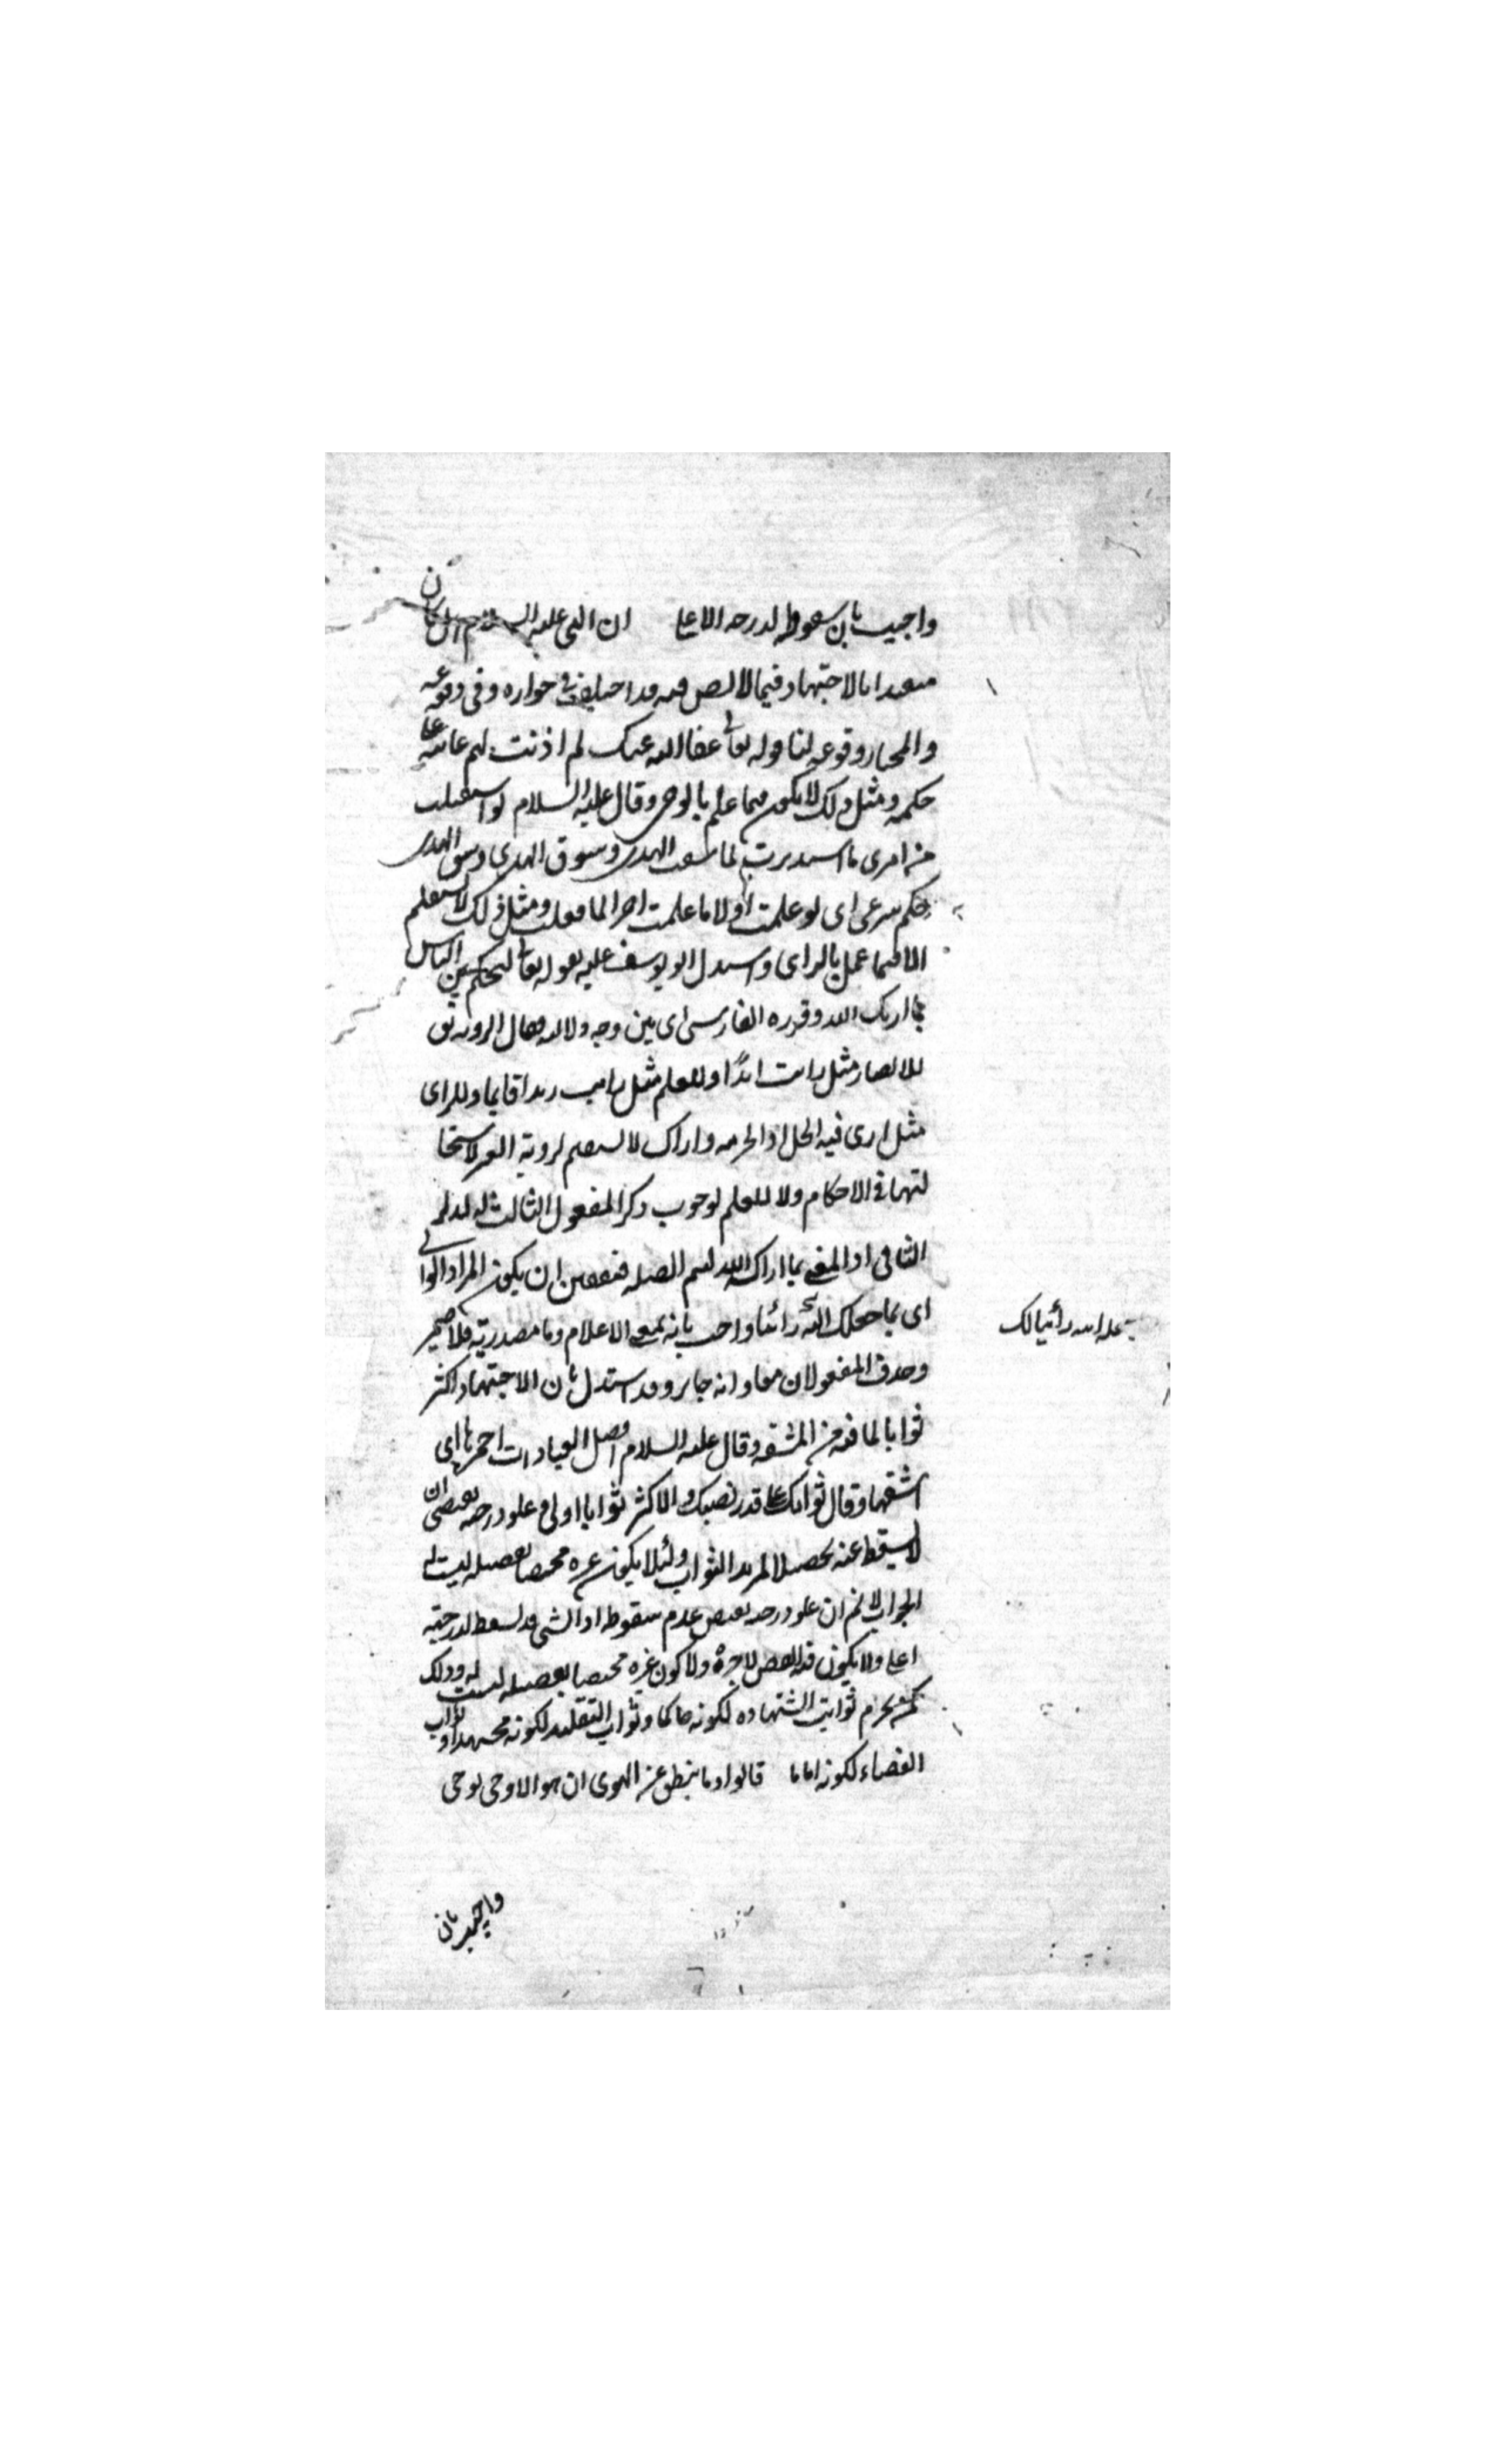 واجيب بان سقوطه لدرجه الاعلى ان النبى عليه السلام هل كان
متعبدا بالاجتهاد فيما لا نص فيه قد اختلف فى جوازه وفى وقوعه
والمختار وقوعه لنا قوله تعالى عفا الله عنك لم اذنت لهم عاتبه على
حكمه ومثل ذلك لا يكون فيما علم بالوحى وقال عليه السلام لو استقبلت
من امرى ما استدبرت لما سقت الهدى وسوق الهدى وسوق الهدى
حكم شرعى اى لو علمت اولا ما علمت اخرا لما فعلت ومثل ذلك لا يستقيم
الا فيما عمل بالراى واستدل ابو يوسف عليه بقوله تعالى لتحكم بين الناس
بما اريك الله وقرره الفارسى اى بين وجه دلالته فقال الرويه تق
للابصار مثل رايت زيدا وللعلم مثل رايت زيدا قايما وللراى
مثل ارى فيه الحل او الحرمه واراك لا يستقيم لروية العين لاستحا
لتها فى الاحكام ولا للعلم لوجوب ذكر المفعول الثالث له لذكر
الثانى اذ المعنى بما اراكه الله ليتم الصله فتعين ان يكون المراد الراى
اى بما جعلك الله رائيا واجيب بانه بمعنى الاعلام وما مصدرية فلا ضمير
وحذف المفعولان معا وانه جايز وقد استدل بان الاجتهاد اكثر
ثوابا لما فيه من المشقه وقال عليه السلام افضل العبادات احمزها اى
اشقها وقال ثوابك على قدر نصبك والاكثر ثوابا اولى وعلو درجته يقتضى ان
لا يسقط عنه تحصيلا لمزيد الثواب ولئلا يكون غيره مختصا بفضيلة ليست له
الجواب لا نم ان علو درجته يقتضى عدم سقوطه اذ الشى قد يسقط لدرجة
اعلى ولا يكون فيه نقص لاجره ولا كون غيره مختصا بفضيله ليست له وذلك
كمن يحرم ثواب الشهاده لكونه حاكما وثواب التقليد لكونه مجتهدا وثواب
القضاء لكونه اماما قالوا وما ينطق عن الهوى ان هو الا وحى يوحى
الله رأيا لك
واجيب بان